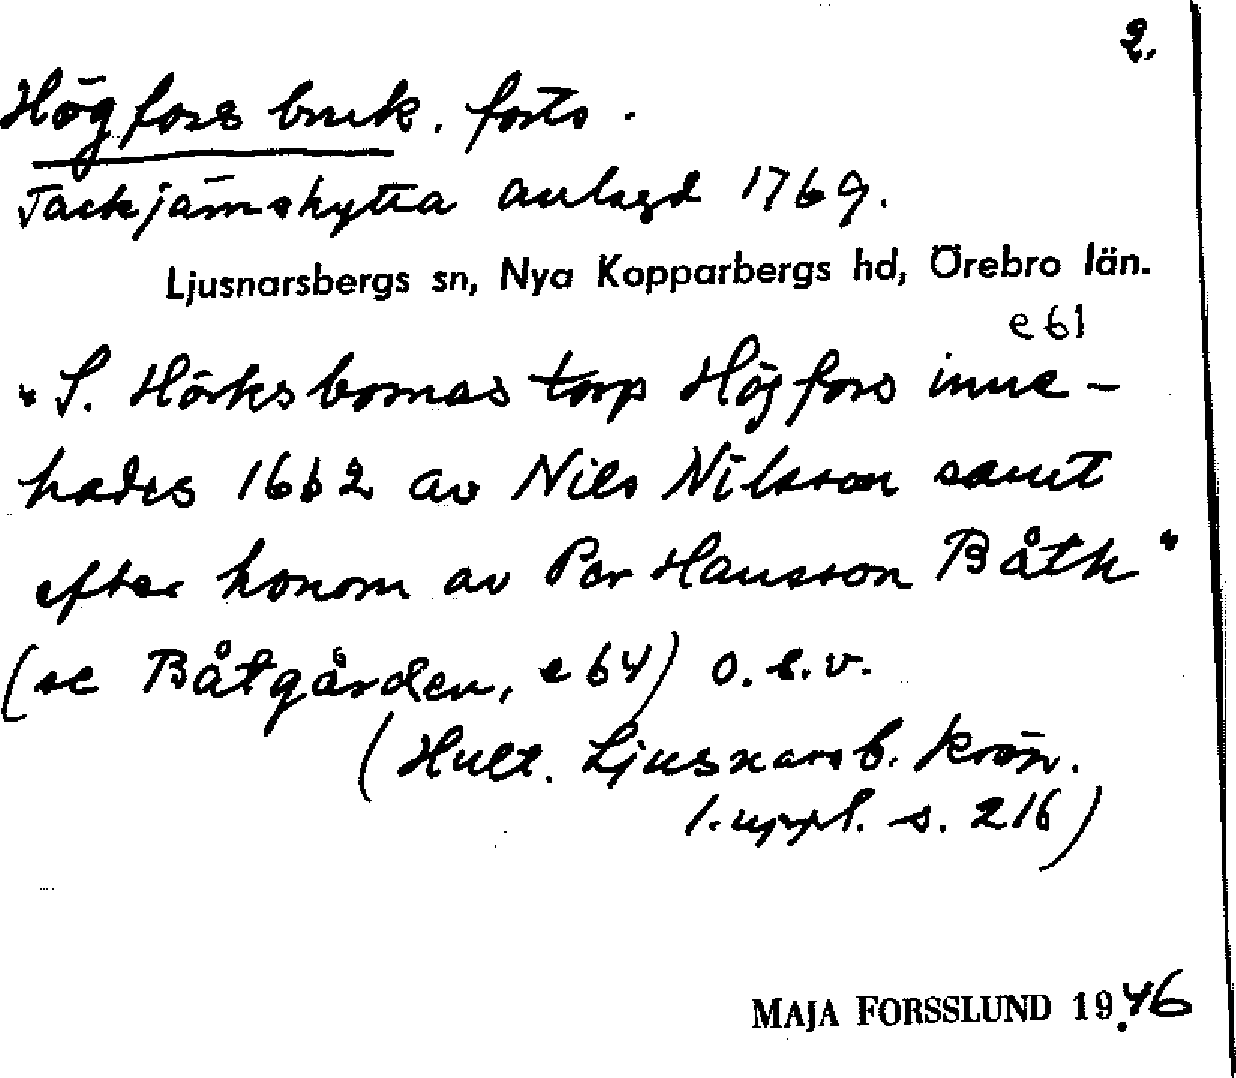 2.
Högfors bruk. forts.
Tackjärnshytta anlagd 1769.
Ljusnarsbergs sn, Nya Kopparbergs hd, Örebro län.
e 61
"S. Hörksbornas torp Högfors inne-
hades 1662 av Nils Nilsson samt
efter honom av Per Hansson Båth"
(se Båtgården, e 64) o.s.v.
(Hult. Ljusnarsb. krön.
1. uppl. s. 216)
MAJA FORSSLUND 1946